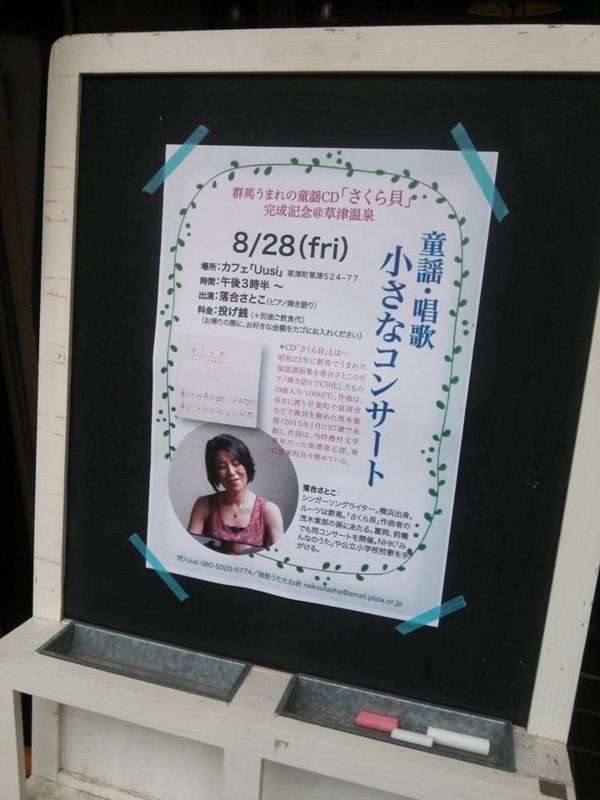 群馬うまれの童謡CD「さくら貝」
完成記念@草津温泉
童謡・唱歌
小さなコンサート
8/28(fri)
場所:カフェ「Uusi」 草津町草津524-77
時間:午後3時半 ～
出演:落合さとこ(ピアノ弾き語り)
料金:投げ銭(+別途ご飲食代)
(お帰りの際に、お好きな金額をカゴにお入れください)
*CD「さくら貝」とは…
昭和22年に群馬でうまれた
童謡譜面集を落合さとこのピ
アノ弾き語りでCD化したもの
(9曲入り/1000円)。作曲は、
長きに渡り甘楽町や富岡市
などで教員を務めた茂木紫
郎(2015年1月に97歳で永
眠)。作詞は、当時農村文学
青年だった黒澤常五郎。後
に甘楽町長を務めている。
さくら貝
落合さとこ:
シンガーソングライター。横浜出身。
ルーツは群馬。「さくら貝」作曲者の
茂木紫郎の孫にあたる。富岡、前橋
でも同コンサートを開催。NHK「み
んなのうた」や公立小学校校歌を手
がける。
問)Uusi 080-5020-5774/猫髭うたたね舎 nekoutasha@amail.plala.or.jp